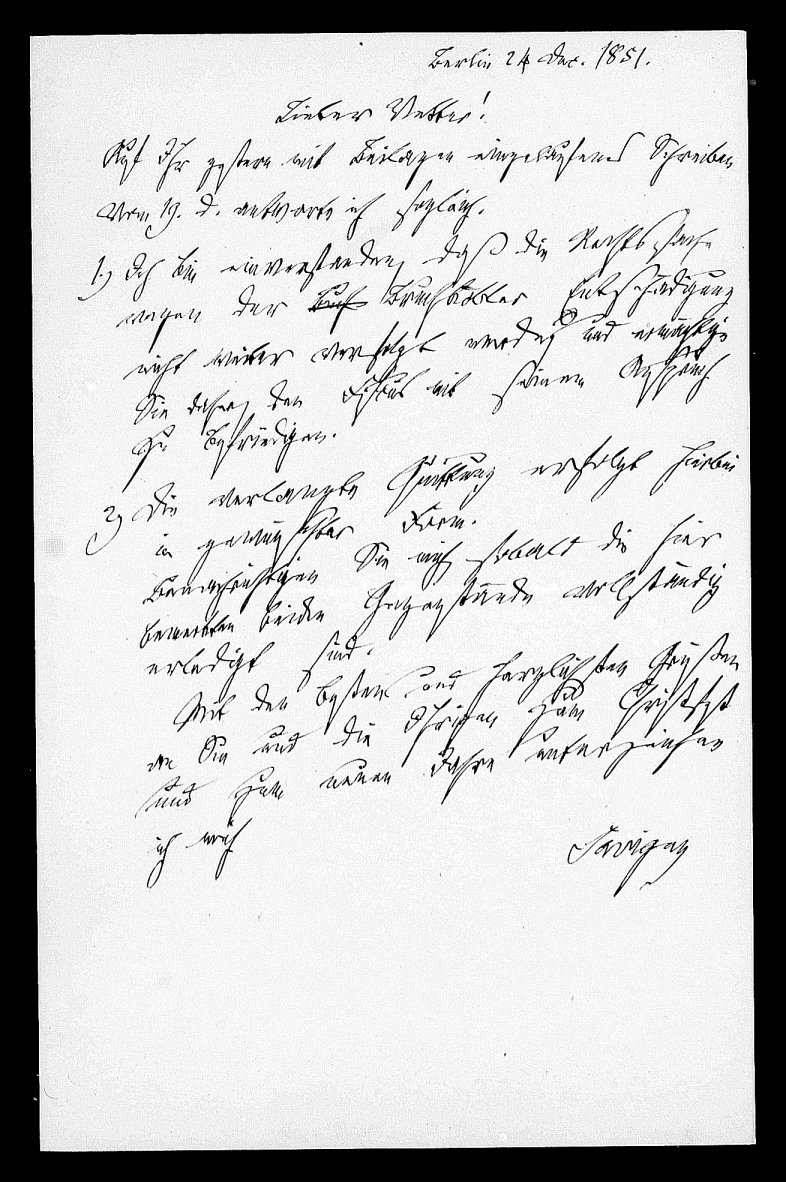 Berlin 24 Dec. 1851.
Lieber Vetter!
Auf Ihr gestern mit Beilagen eingelaufenes Schreiben
vom 19. d. antworte ich sogleich.
1) Ich bin einverstanden, daß die Rechtssache
wegen der Entschädigung
nicht weiter verfolgt werde, und ermächtige
Sie daher, den Fiskus mit seinem Anspruch
zu befriedigen.
2) Die verlangte Quittung erfolgt hierbei
in gewünschter Form.
Benachrichtigen Sie mich sobald die hier
bemerkten beiden Gegenstände vollständig
erledigt sind.
Mit den besten und herzlichsten Grüßen
an Sie und die Ihrigen zum Christfest
und zum neuen Jahre unterzeichne
ich mich
Savigny